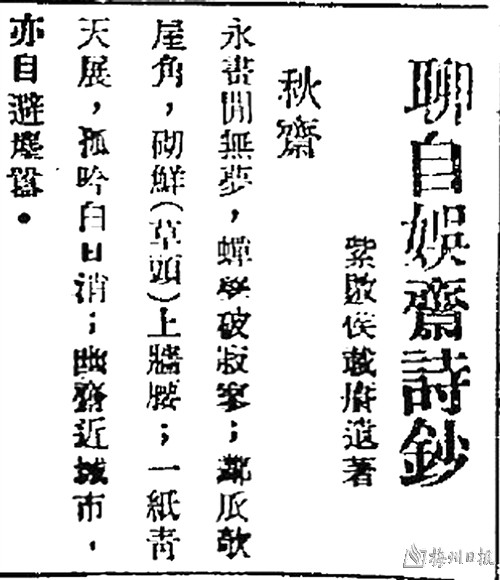 聊自娛齋詩鈔
紫侯遺著
秋齋
永晝閒無夢，蟬聲破寂寥；鄰瓜欹
屋角，砌鮮（草頭）上牆腰；一紙青
天展，孤吟白日消；幽齋近城市，
亦自避塵囂。
梅州日报